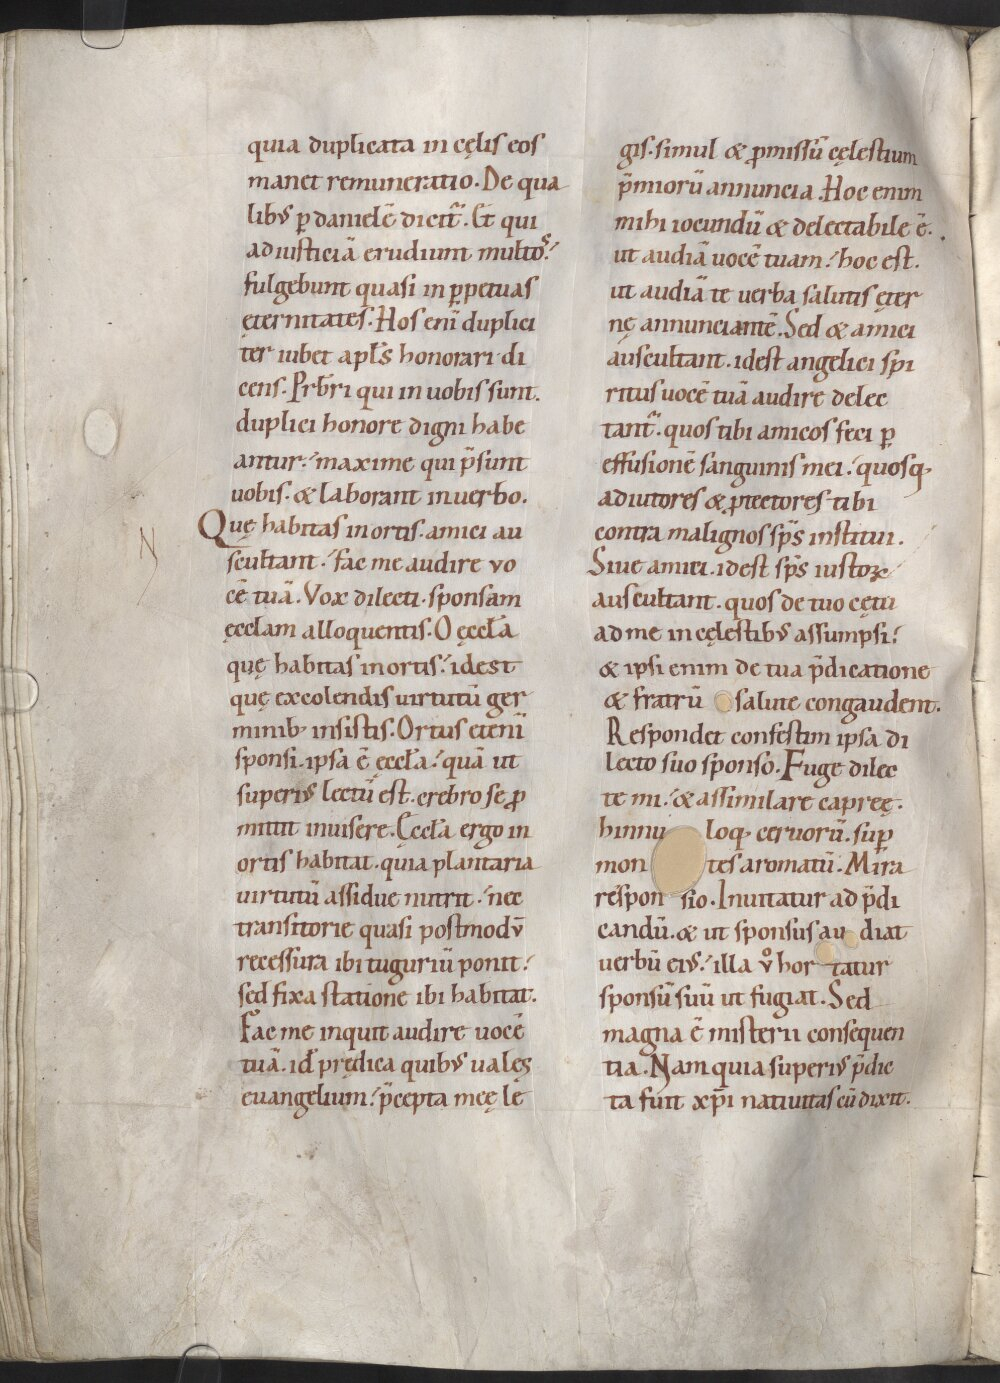 quia duplicata in cęlis eos
manet remuneratio. De qua
lib᷒ ꝑ danielē dicit᷑. Et qui
ad iusticiā erudiunt multos?
fulgebunt quasi in ꝑpetuas
ęternitates. Hos enī duplici
ter iubet apl̄s honorari di
cens. Prb̄ri qui in uobis sunt.
duplici honore digni habe
antur. maxime qui p̄sunt
uobis. & laborant in uerbo.
Quę habitas in ortis. amici au
scultant. fac me audire vo
cē tuā. Vox dilecti. sponsam
ęcclam alloquentis. O ęccl̄a
quę habitas in ortis. idest
quę excolendis uirtutū ger
minib; insistis. Ortus etenī
sponsi. ipsa ē ęccl̄a. quā ut
superi᷒ lectū est. crebro se ꝓ
mittit inuisere. Ęccl̄a ergo in
ortis habitat. quia plantaria
uirtutū assidue nutrit. nec
transitorie quasi postmodū
recessura ibi tuguriū ponit.
sed fixa statione ibi habitat.
Fac me inquit audire uocē
tuā. id̄ prędica quib᷒ uales
euangelium. p̄cepta meę le
N
gis. simul & ꝓmissū cęlestium
p̄miorū annuncia. Hoc enim
mihi iocundū & delectabile ē.
ut audiā uocē tuam. hoc est.
ut audiā te uerba salutis ęter
nę annunciantē. Sed & amici
auscultant. idest angelici spi
ritus uocē tuā audire delec
tant᷑. quos tibi amicos feci ꝑ
effusionē sanguinis mei. quosq;
adiutores & ꝓtectores tibi
contra malignos sp̄s institui.
Siue amici. idest sp̄s iustoꝝ
auscultant. quos de tuo cętu
ad me in cęlestib᷒ assumpsi.
& ipsi enim de tua p̄dicatione
& fratrū salute congaudent.
Respondet confestim ipsa di
lecto suo sponso. Fuge dilec
te mi. & assimilare capreę.
hinnuloq; ceruorū. suꝑ
montes aromatū. Mira
responsio. Inuitatur ad p̄di
candū. & ut sponsus audiat
uerbū ei᷒. illa v̊ hortatur
sponsū suū ut fugiat. Sed
magna ē misterii consequen
tia. Nam quia superi᷒ p̄dic
ta fuit xp̄i natiuitas cū dixit.